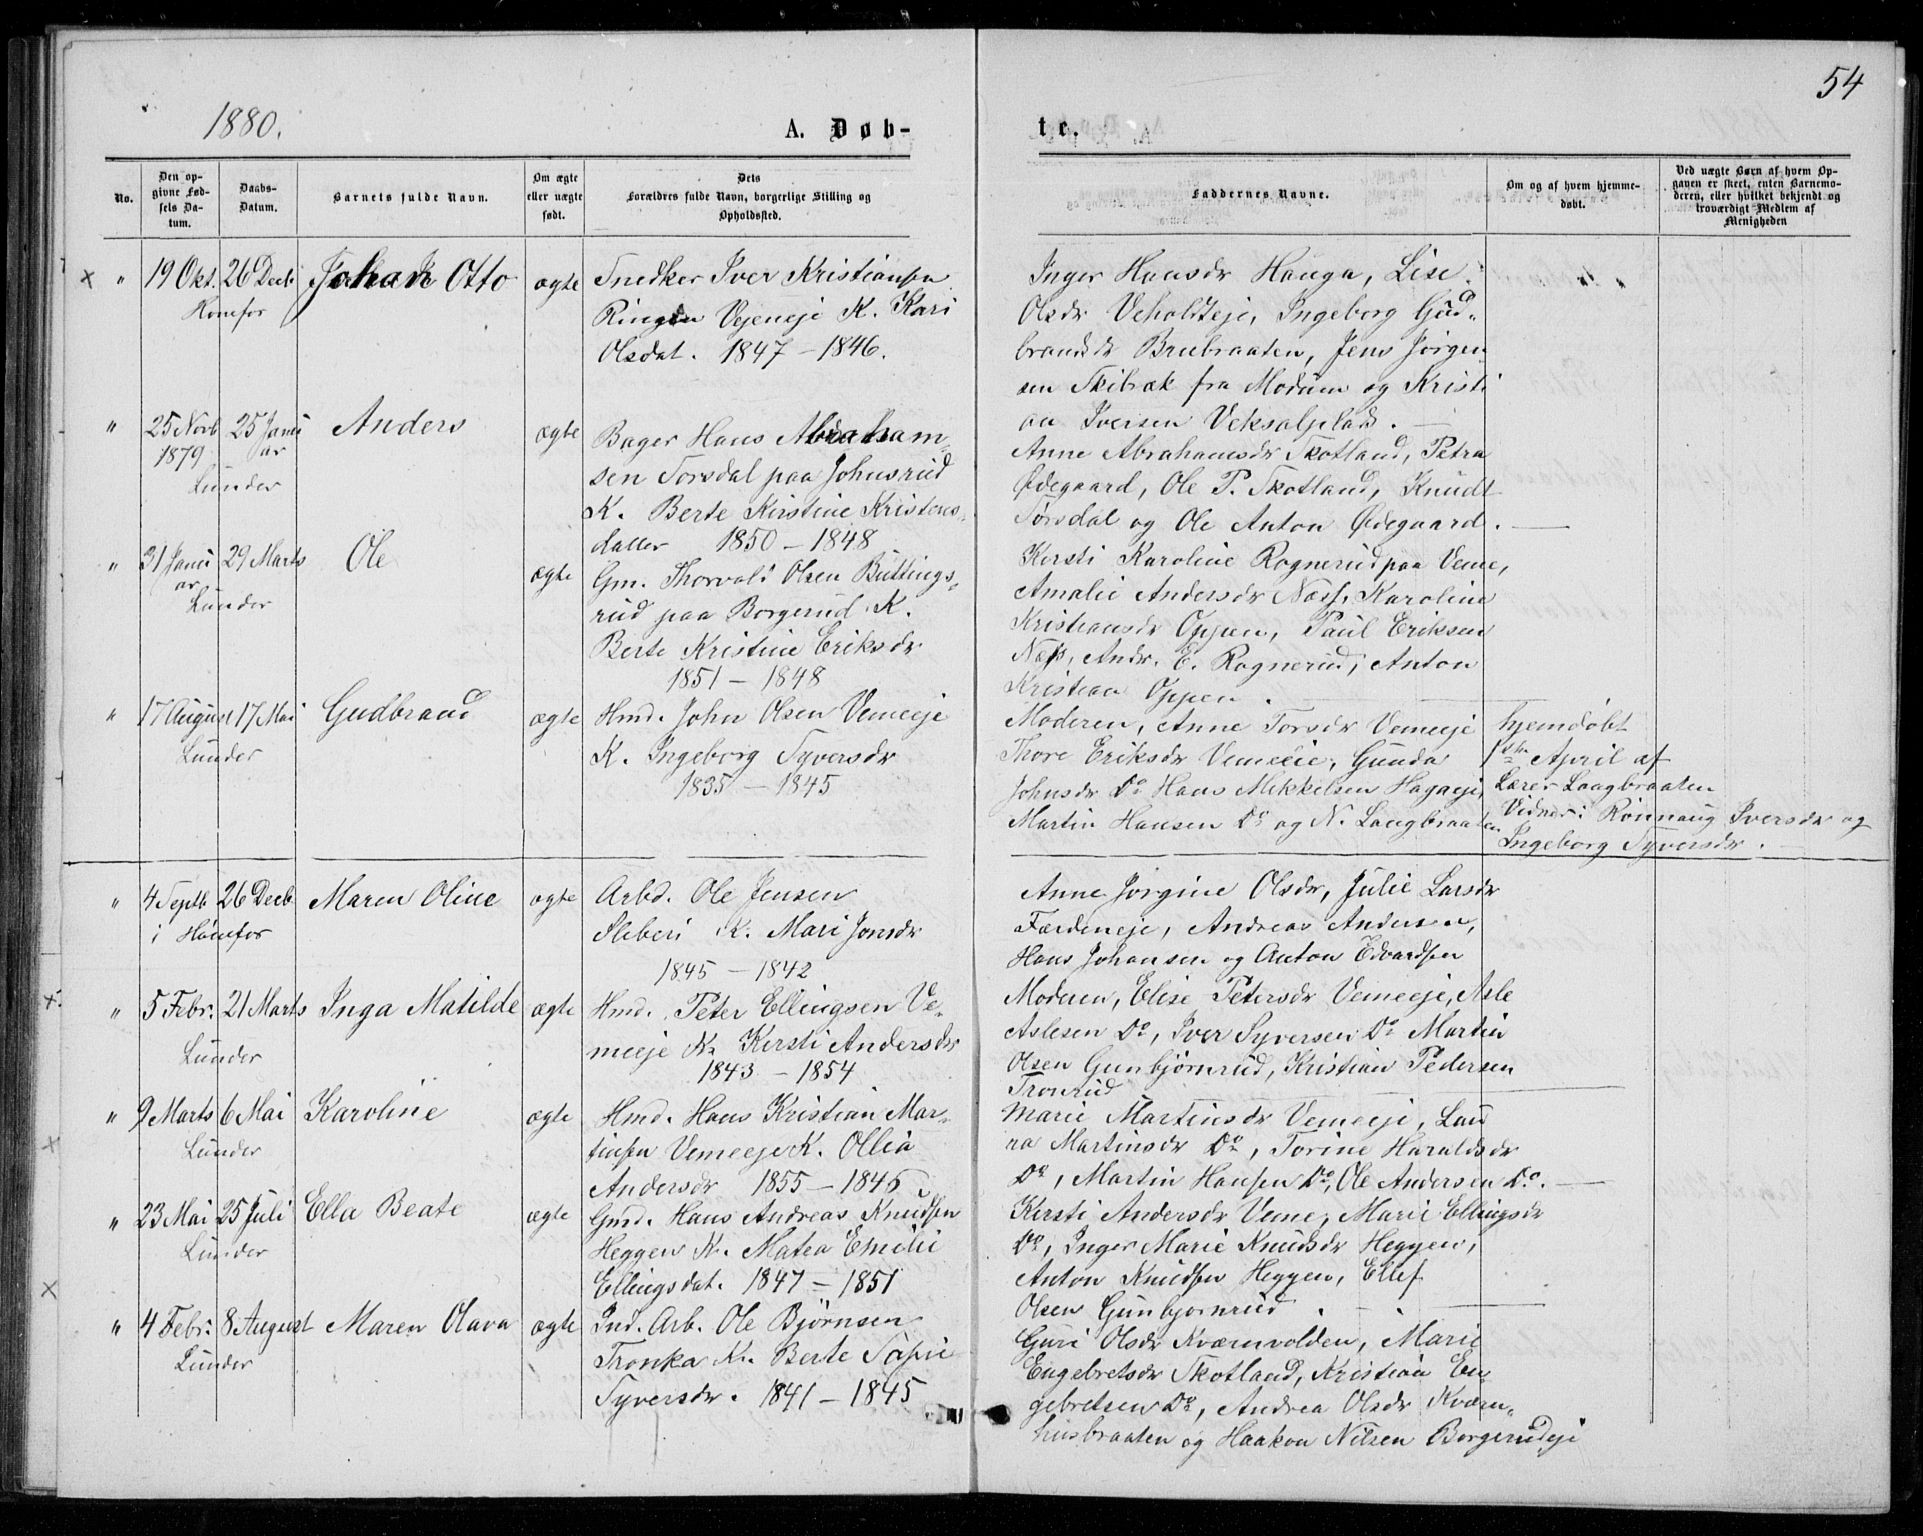 54
1880.
A. Døb-
te.
No.
Den op-
givne Fød-
sels Da-
tum.
Daabs-
Datum.
Barnets fulde Navn.
Om ægte
eller uægte
født.
Dets
Forældres fulde Navn, borgerlige Stilling og
Opholdssted.
Faddernes Navne.
Om og af hvem hjemme-
døbt.
Ved uægte Børn af hvem Op-
gaven er skeet, enten Barnemo-
deren, eller hvilket bekjendt og
troværdigt Medlem af
Menigheden
× " 19 Okt. 26 Decb Johan Otto ægte Snedker Iver Kristiansen
Honefos
Ringen Vejeneje K. Kari
Olsdat. 1847 - 1846.
Inger Hansdr Hauga, Lise
Olsdr Veholdteje, Ingeborg Gud-
brandsdr Brubraaten, Jens Jörgen-
sen Skibræk fra Modum og Kristi
an Iversen Veksalplads.
" 25 Novb 25 Janu Anders ægte Bager Hans Abraham-
1879 ar
Lunder
sen Torsdal paa Johnsrud
K. Berte Kirstine Kristens-
datter 1850 - 1848
Anne Abrahamsdr Skotland, Petra
Ødegaard, Ole P. Skotland, Knudt
Torsdal og Ole Anton Ødegaard.
" 31 Janu 29 Marts Ole ægte Gm. Thorvald Olsen Buttings-
ar
Lunder
rud paa Borgerud K.
Berte Kristine Eriksdr
1851 - 1848
Kersti Karoline Rognerud paa Veme,
Amalie Andersdr Næss, Karoline
Kristiansdr Oppen, Paul Eriksen
Næss, Andr. E. Rognerud, Anton
Kristian Oppen.
" 17 August 17 Mai Gudbrand ægte Hmd. John Olsen Vemeeje
Lunder
K. Ingeborg Syversdr
1835 - 1845
Moderen, Anne Torsdr Vemeeje
Thore Eriksdr Vemeeie, Gunda
Johnsdr Do Hans Mikkelsen Hagaeje,
Martin Hansen Do og N. Langbraaten
hjemdöbt
1ste April af
Lærer Langbraaten
Vidner: Rönnaug Iversdr og
Ingeborg Syversdr.
" 4 Septb 26 Decb Maren Oline ægte Arbd. Ole Jensen
i Hönefos
Sleberi K. Mari Jonsdr
1845 - 1842
Anne Jörgine Olsdr, Julie Larsdr
Færdeneje, Andreas Andersen,
Hans Johansen og Anton Edvardsen
× " 5 Febr: 21 Marts Inga Matilde ægte Hmd. Peter Ellingsen Ve-
Lunder
meeje K. Kersti Andersdr
1843 - 1854
Moderen, Elise Petersdr Vemeeje, Asle
Aslesen Do, Iver Syversen Do Martin
Olsen Gunbjörnrud, Kristian Pedersen
Tronrud
× " 9 Marts 6 Mai Karoline ægte Hmd. Hans Kristian Mar-
Lunder
tinsen Vemeeje K. Ollia
Andersdr 1855 - 1846
Marie Martinsdr Vemeeje, Lau
ra Martinsdr Do, Torine Haraldsdr
Do, Martin Hansen Do, Ole Andersen Do.
× " 23 Mai 25 Juli Ella Beate ægte Gmd. Hans Andreas Knudsen
Lunder
Heggen K. Matea Emilie
Ellingsdat. 1847 - 1851
Kersti Andersdr Veme, Marie Ellingsdr
Do, Inger Marie Knudsdr Heggen,
Anton Knudsen Heggen, Ellef
Olsen Gunbjornrud.
" 4 Febr: 8 August Maren Olava ægte Ind. Arb. Ole Bjørnsen
Lunder
Tronka K. Berte Sofie
Syversdr. 1841 - 1845
Guri Olsdr Kværnvolden, Marie
Engebretsdr Skotland, Kristian En-
gebretsen Do, Andrea Olsdr Kværn-
husbraaten og Haakon Nilsen Borgerudeje